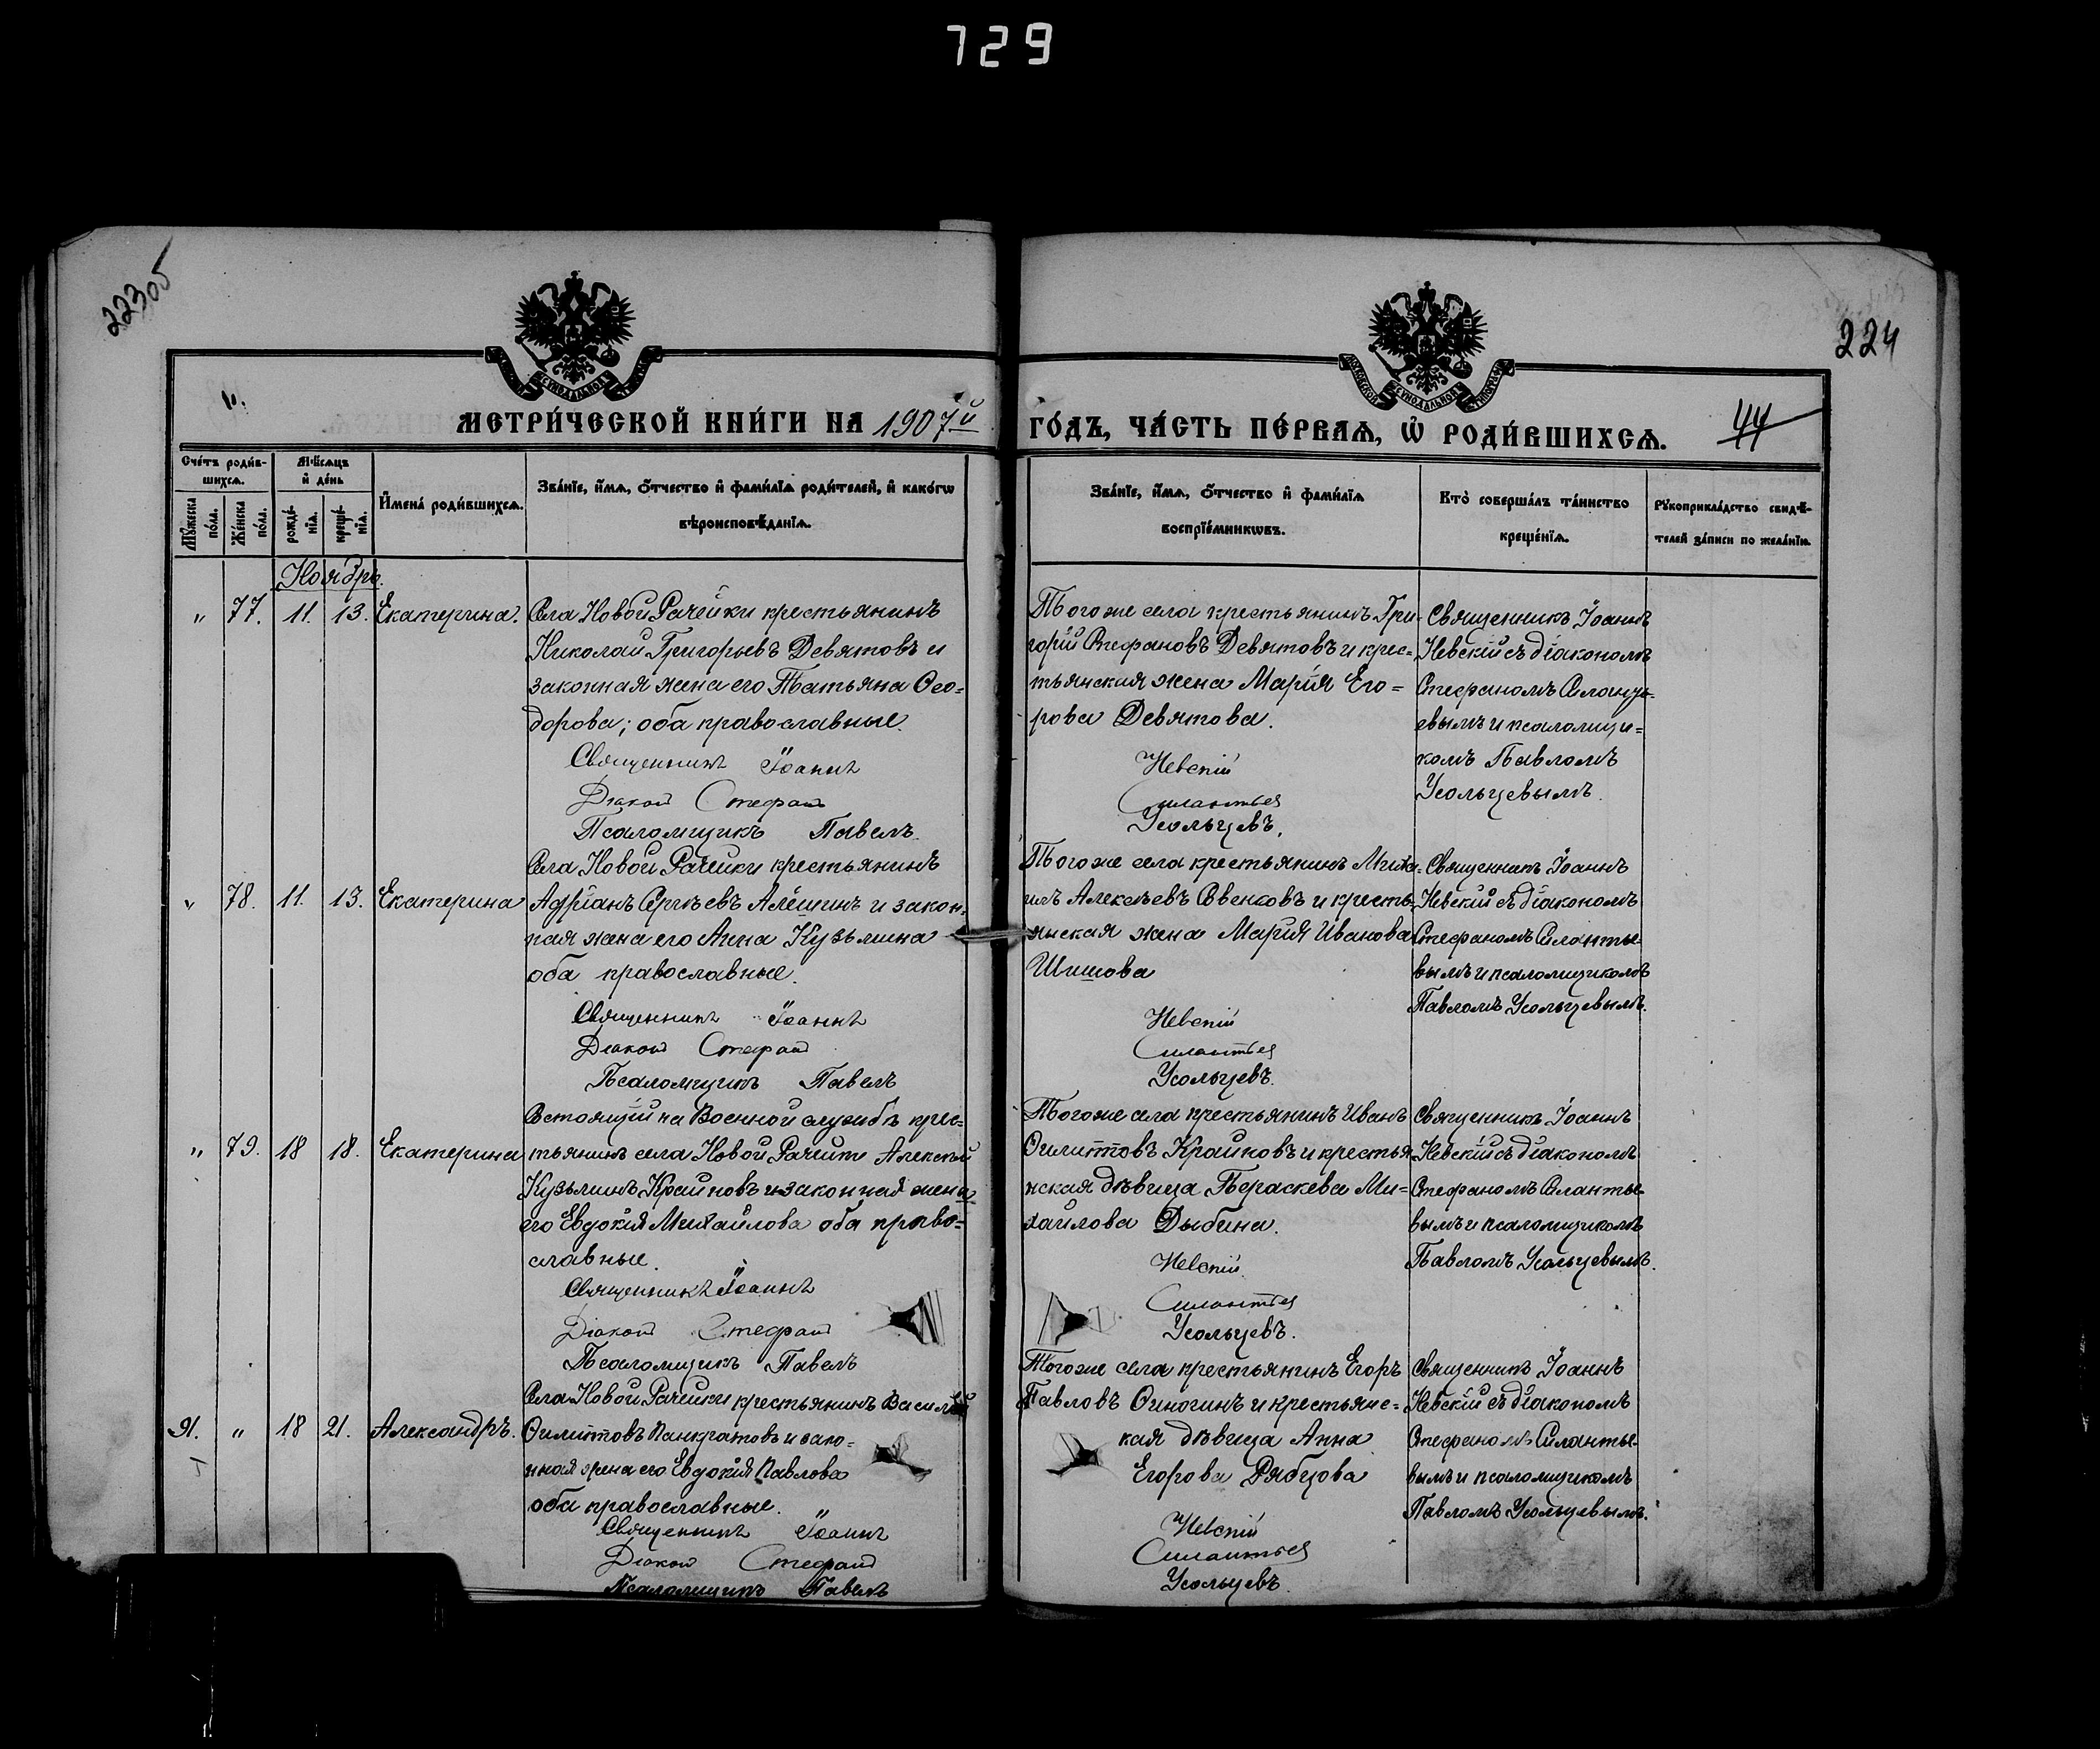 729
22305
224
44
МЕТРИ́ЧЕСКОЙ КНИ́ГИ НА 1907й ГО́ДЪ, ЧА́СТЬ ПЕ́РВАѦ, Ѡ РОДИ́ВШИХСѦ.
Сче́тъ роди́в-
шихсѧ.
Мꙋ́жеска по́ла.
Же́нска по́ла.
Мѣ́сѧцъ и де́нь
рожде́-
нїѧ.
креще́-
нїѧ.
Имена̀ роди́вшихсѧ.
Зва́нїе, и́мѧ, о́тчество и фами́лїѧ роди́телей, и како́гѡ
вѣроисповѣ́данїѧ.
Зва́нїе, и́мѧ, о́тчество и фами́лїѧ
воспрїе́мникѡвъ.
Кто̀ соверша́лъ та́инство
креще́нїѧ.
Рꙋкоприкла́дство свидѣ́-
телей за́писи по жела́нїю.
Ноябрь.
" 77. 11. 13. Екатерина.
Села Новой Рачейки крестьянинъ
Николай Григорьевъ Девятовъ и
законная жена его Татьяна Ѳео-
дорова; оба православные.
Священникъ Іоаннъ
Діаконъ Стефанъ
Псаломщикъ Павелъ
Того же села крестьянинъ Гри-
горій Стефановъ Девятовъ и крес-
тьянская жена Марія Его-
рова Девятова.
Невскій
Силантьев
Усольцевъ.
Священникъ Іоаннъ
Невскій съ діакономъ
Стефаномъ Силанть-
евымъ и псаломщи-
комъ Павломъ
Усольцевымъ.
" 78. 11. 13. Екатерина
Села Новой Рачейки крестьянинъ
Адріанъ Сергѣевъ Алёшинъ и закон-
ная жена его Анна Кузьмина
оба православные.
Священникъ Іоаннъ
Діаконъ Стефанъ
Псаломщикъ Павелъ
Того же села крестьянинъ Миха-
илъ Алексѣевъ и кресть-
янская жена Марія Иванова
Шишова
Невскій
Силантьев
Усольцевъ.
Священникъ Іоаннъ
Невскій съ діакономъ
Стефаномъ Силантье-
вымъ и псаломщикомъ
Павломъ Усольцевымъ.
" 79. 18 18. Екатерина
Состоящій на Военной службѣ крес-
тьянинъ села Новой Рачейки Алексѣй
Кузьминъ Крайновъ и законная жена
его Евдокія Михайлова оба право-
славные.
Священникъ Іоаннъ
Діаконъ Стефанъ
Псаломщикъ Павелъ
Того же села крестьянинъ Иванъ
Филипповъ Крайновъ и крестья-
нская дѣвица Параскева Ми-
хайлова Дыбина.
Невскій
Силантьев
Усольцевъ.
Священникъ Іоаннъ
Невскій съ діакономъ
Стефаномъ Силантье-
вымъ и псаломщикомъ
Павломъ Усольцевымъ.
91. " 18 21. Александръ.
Села Новой Рачейки крестьянинъ Василій
Филипповъ Панкратовъ и зако-
нная жена его Евдокія Павлова
оба православные.
Священникъ Іоаннъ
Діаконъ Стефанъ
Псаломщикъ Павелъ
Того же села крестьянинъ Егоръ
Павловъ Финогинъ и крестьянс-
кая дѣвица Анна
Егорова Рябцова
Невскій
Силантьев
Усольцевъ.
Священникъ Іоаннъ
Невскій съ діакономъ
Стефаномъ Силантье-
вымъ и псаломщикомъ
Павломъ Усольцевымъ.